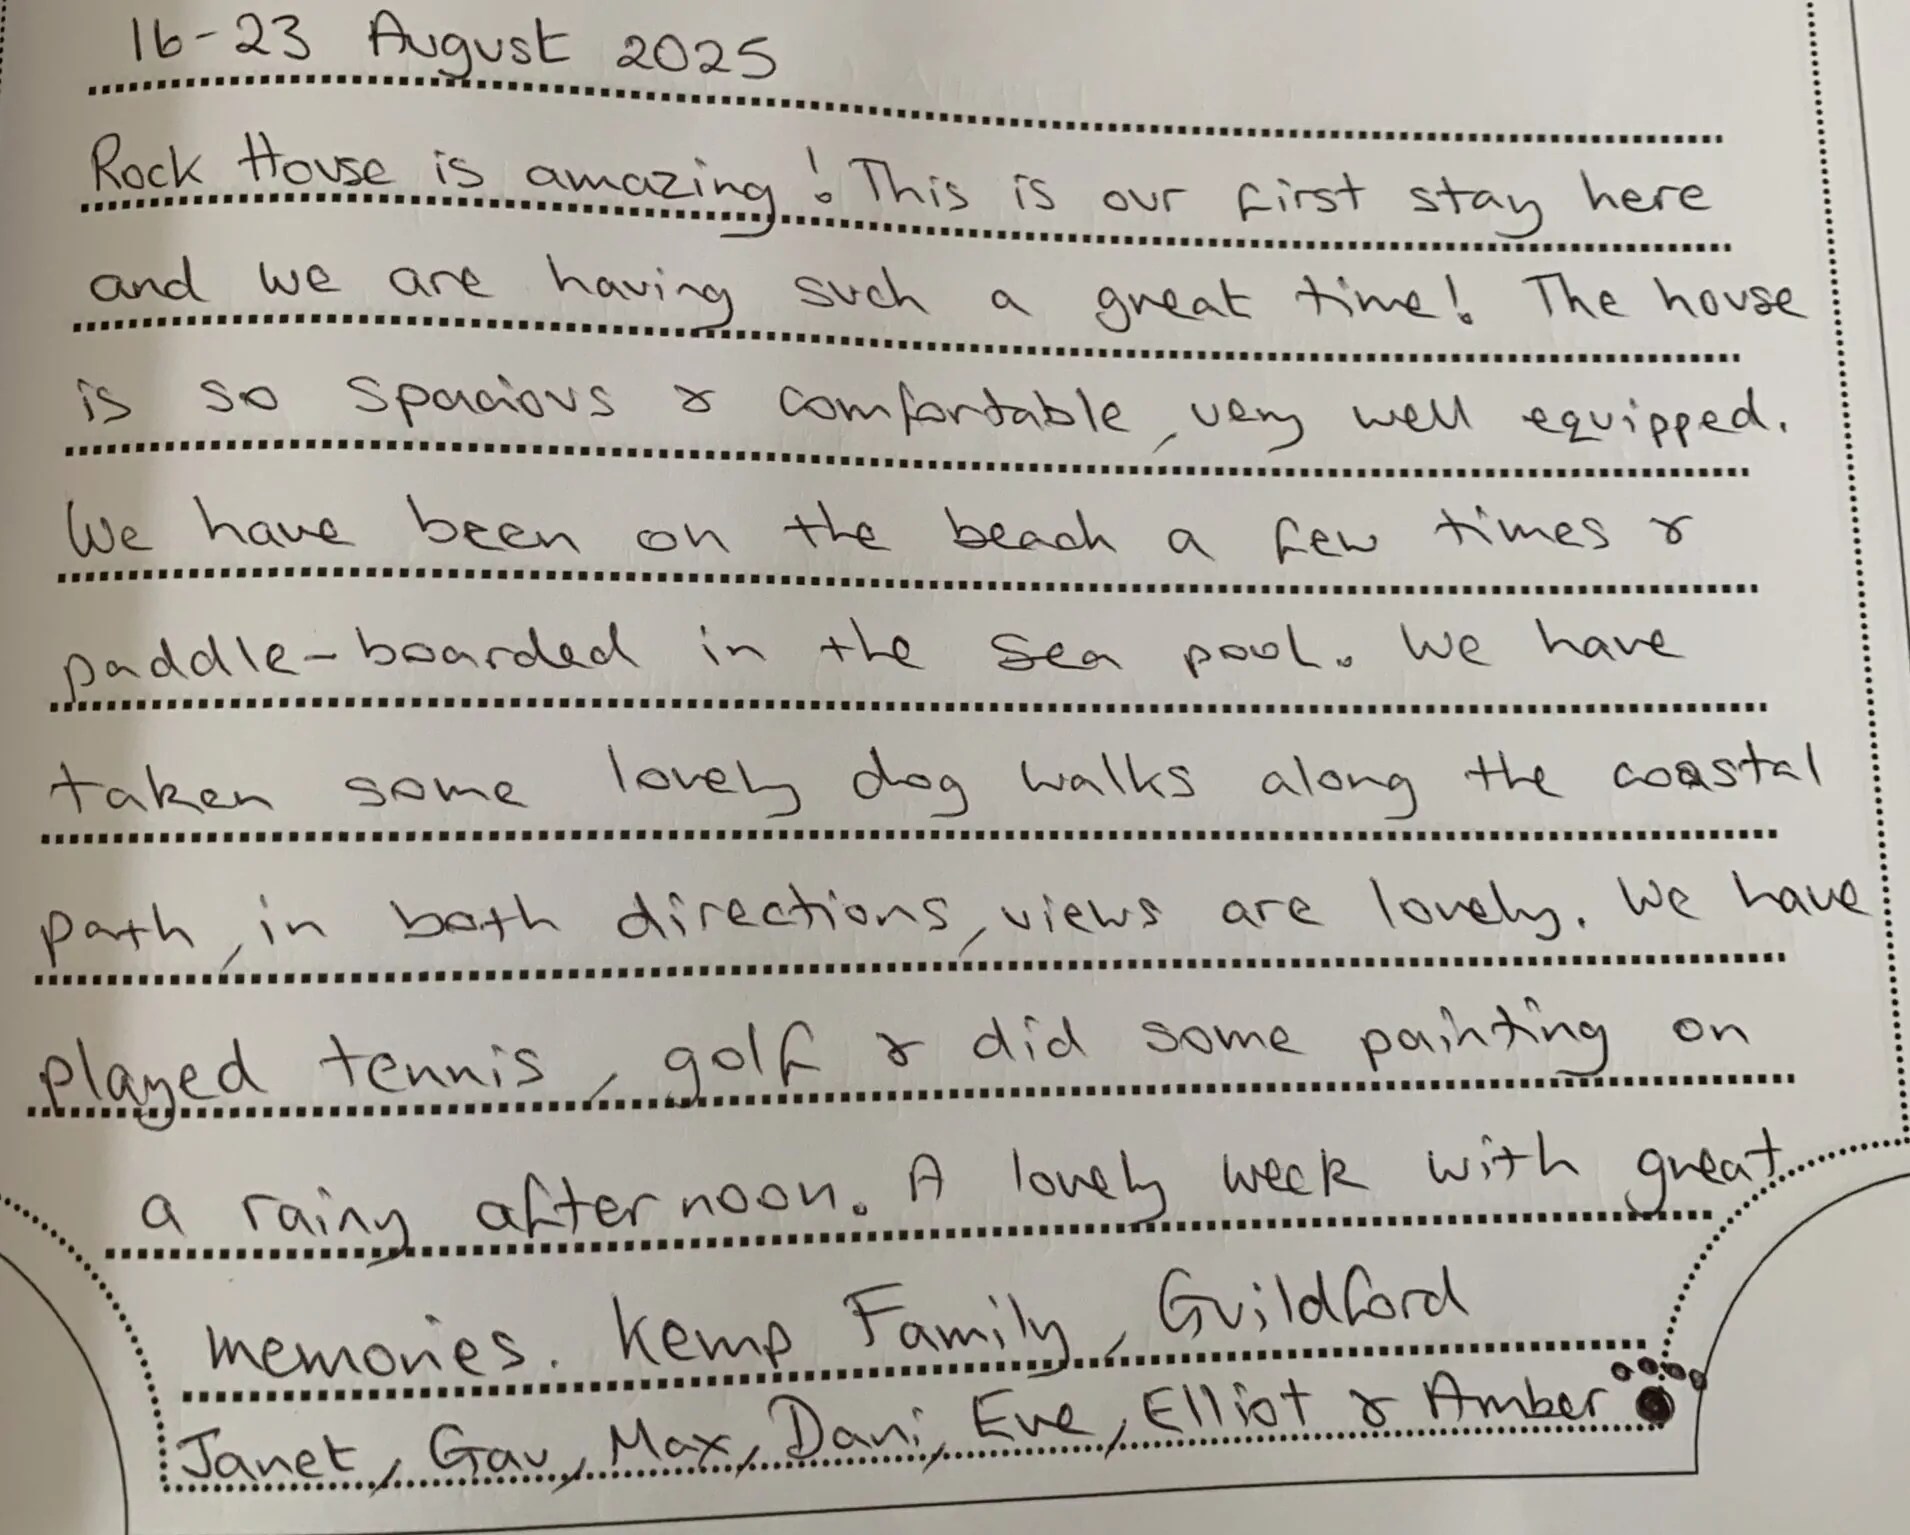 16-23 August 2025
Rock House is amazing! This is our first stay here
and we are having such a great time! The house
is so spacious & comfortable, very well equipped.
We have been on the beach a few times &
paddle-boarded in the sea pool. We have
taken some lovely dog walks along the coastal
path, in both directions, views are lovely. We have
played tennis, golf & did some painting on
a rainy afternoon. A lovely week with great
memories. Kemp Family, Guildford
Janet, Gav, Max, Dani, Eve, Elliot & Amber